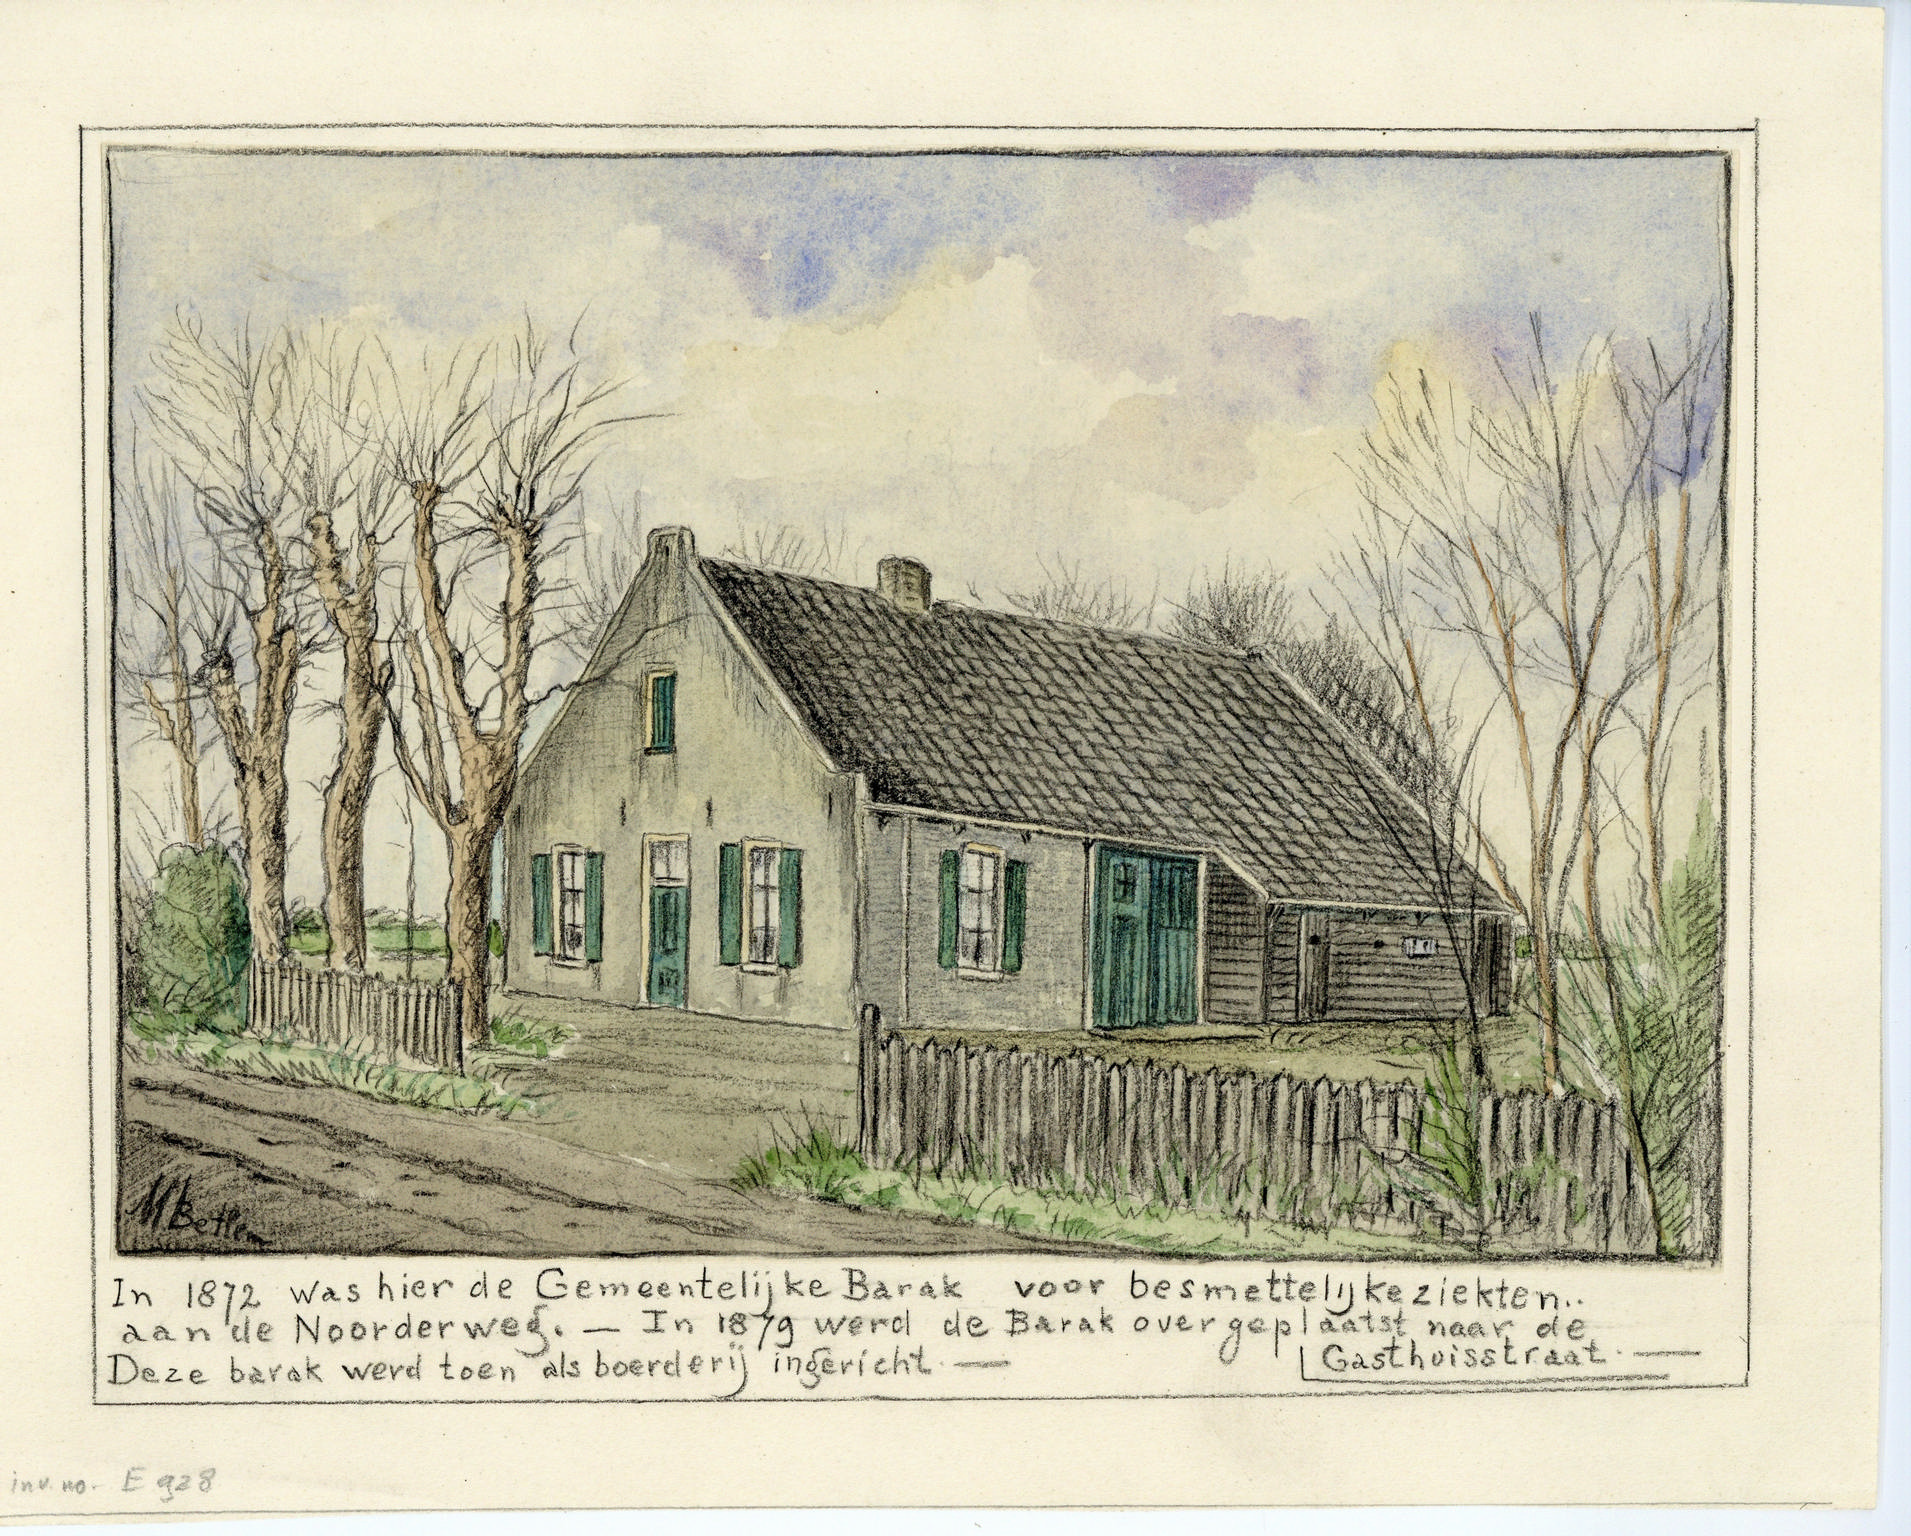 MBetlem
In 1872 was hier de Gemeentelijke Barak voor besmettelijke ziekten..
aan de Noorderweg. — In 1879 werd de Barak overgeplaatst naar de
Gasthuisstraat. —
Deze barak werd toen als boerderij ingericht. —
inv. no. E 928